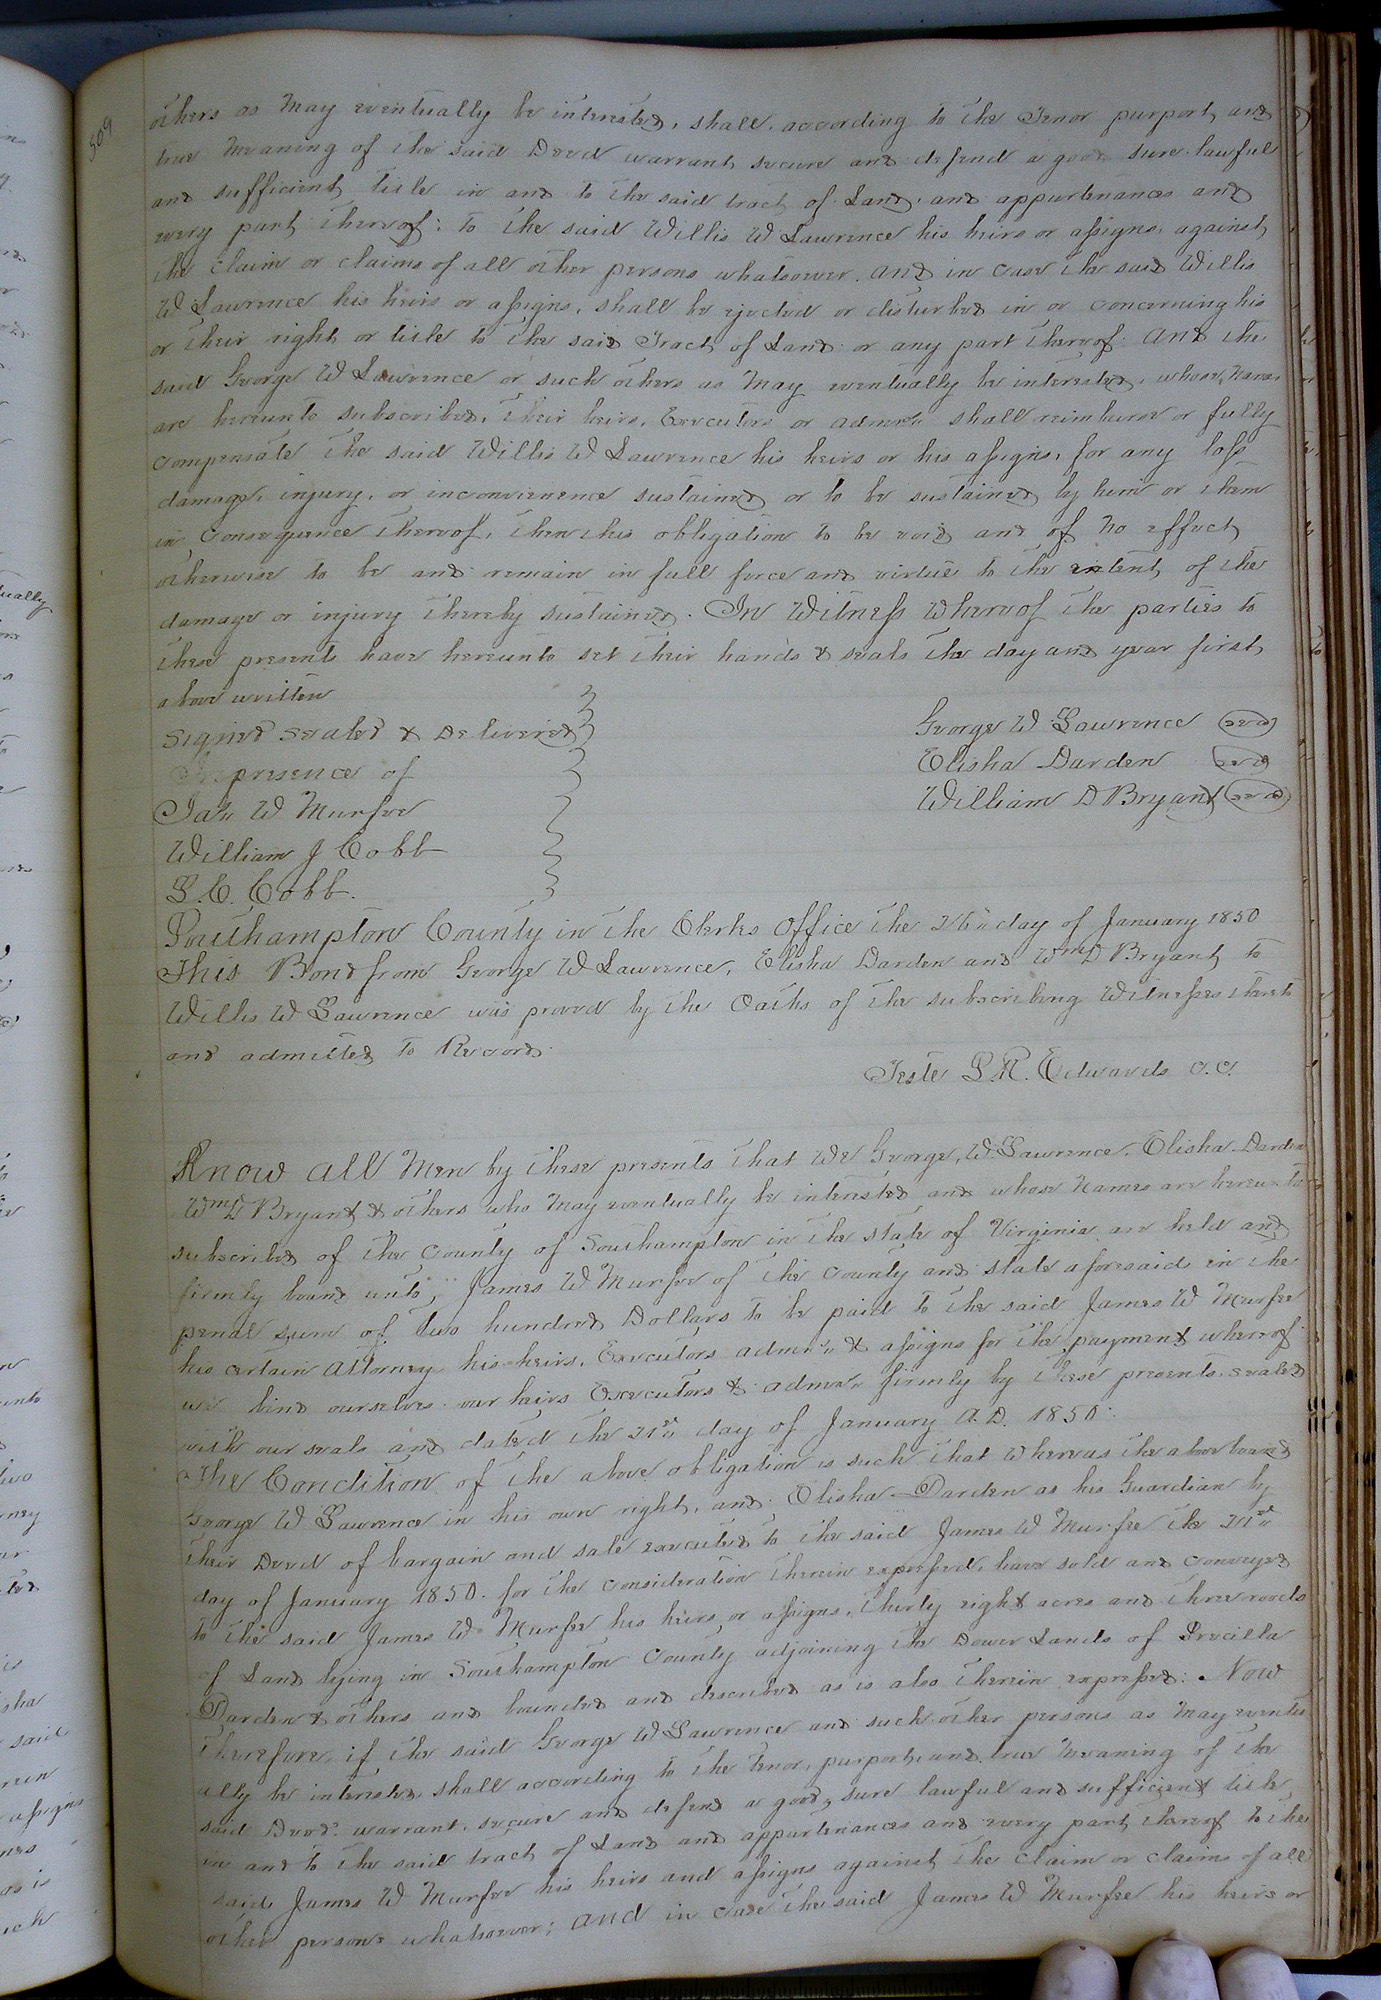 509
others as May eventually be interested, shall, according to the Tenor purport, and
true Meaning of the said Deed warrant, secure and defend a good sure lawful
and sufficient title in and to the said tract of Land, and appurtenances and
every part thereof: to the said Willis W Lawrence his heirs or assigns, against
the claim or claims of all other persons whatsoever. And in case the said Willis
W Lawrence his heirs or assigns, shall be ejected or disturbed in or concerning his
or their right or title to the said Tract of Land or any part thereof: And the
said George W Lawrence or such others as May eventually be interested, whose Names
are hereunto subscribed, their heirs, Executors or admrs shall reimburse or fully
compensate the said Willis W Lawrence his heirs or his assigns, for any loss
damage, injury, or inconvenience sustained or to be sustained by him or them
in consequence thereof, then this obligation to be void and of No effect,
otherwise to be and remain in full force and virtue to the extent of the
damage or injury thereby sustained. In Witness Whereof the parties to
these presents have hereunto set their hands & seals the day and year first,
above written
Signed Sealed & Delivered George W Lawrence (seal)
In presence of Elisha Darden (seal)
Jas W Murfee William D Bryant (seal)
William J Cobb
L. C. Cobb.
Southampton County in the Clerks Office the 26" day of January 1850
This Bond from George W Lawrence, Elisha Darden and Wm D Bryant, to
Willis W Lawrence was proved by the Oaths of the subscribing Witnesses thereto
and admitted to Record.
Teste L. R. Edwards C.C.
Know All Men by these presents that We George, W Lawrence, Elisha Darden
Wm D Bryant & others who May eventually be interested and whose Names are hereunto
subscribed of the County of Southampton in the State of Virginia are held and
firmly bound unto, James W Murfee of the County and state aforesaid in the
penal sum of two hundred Dollars to be paid to the said James W Murfee
his certain Attorney his heirs, Executors admrs & assigns for the payment whereof
we bind ourselves our heirs Executors & admrs firmly by these presents, sealed
with our seals and dated the 21st day of January A.D. 1850.
The Condition of the above obligation is such that Whereas the above bound
George W Lawrence in his own right, and Elisha Darden as his Guardian by
their Deed of bargain and sale executed to the said James W Murfee the 21st
day of January 1850. for the consideration therein expressed, have sold and conveyed
to the said James W Murfee his heirs or assigns, thirty eight acres and three roods
of Land lying in Southampton County adjoining the Dower Lands of Precilla
Darden & others and bounded and described as is also therein expressed: Now
therefore, if the said George W Lawrence and such other persons as May eventu
ally be interested, shall according to the Tenor, purport, and true Meaning of the
said Deed, warrant, secure and defend a good, sure lawful and sufficient title
in and to the said tract of Land and appurtenances and every part thereof to the
said James W Murfee his heirs and assigns against the claim or claims of all
other persons whatsoever; and in case the said James W Murfee his heirs or